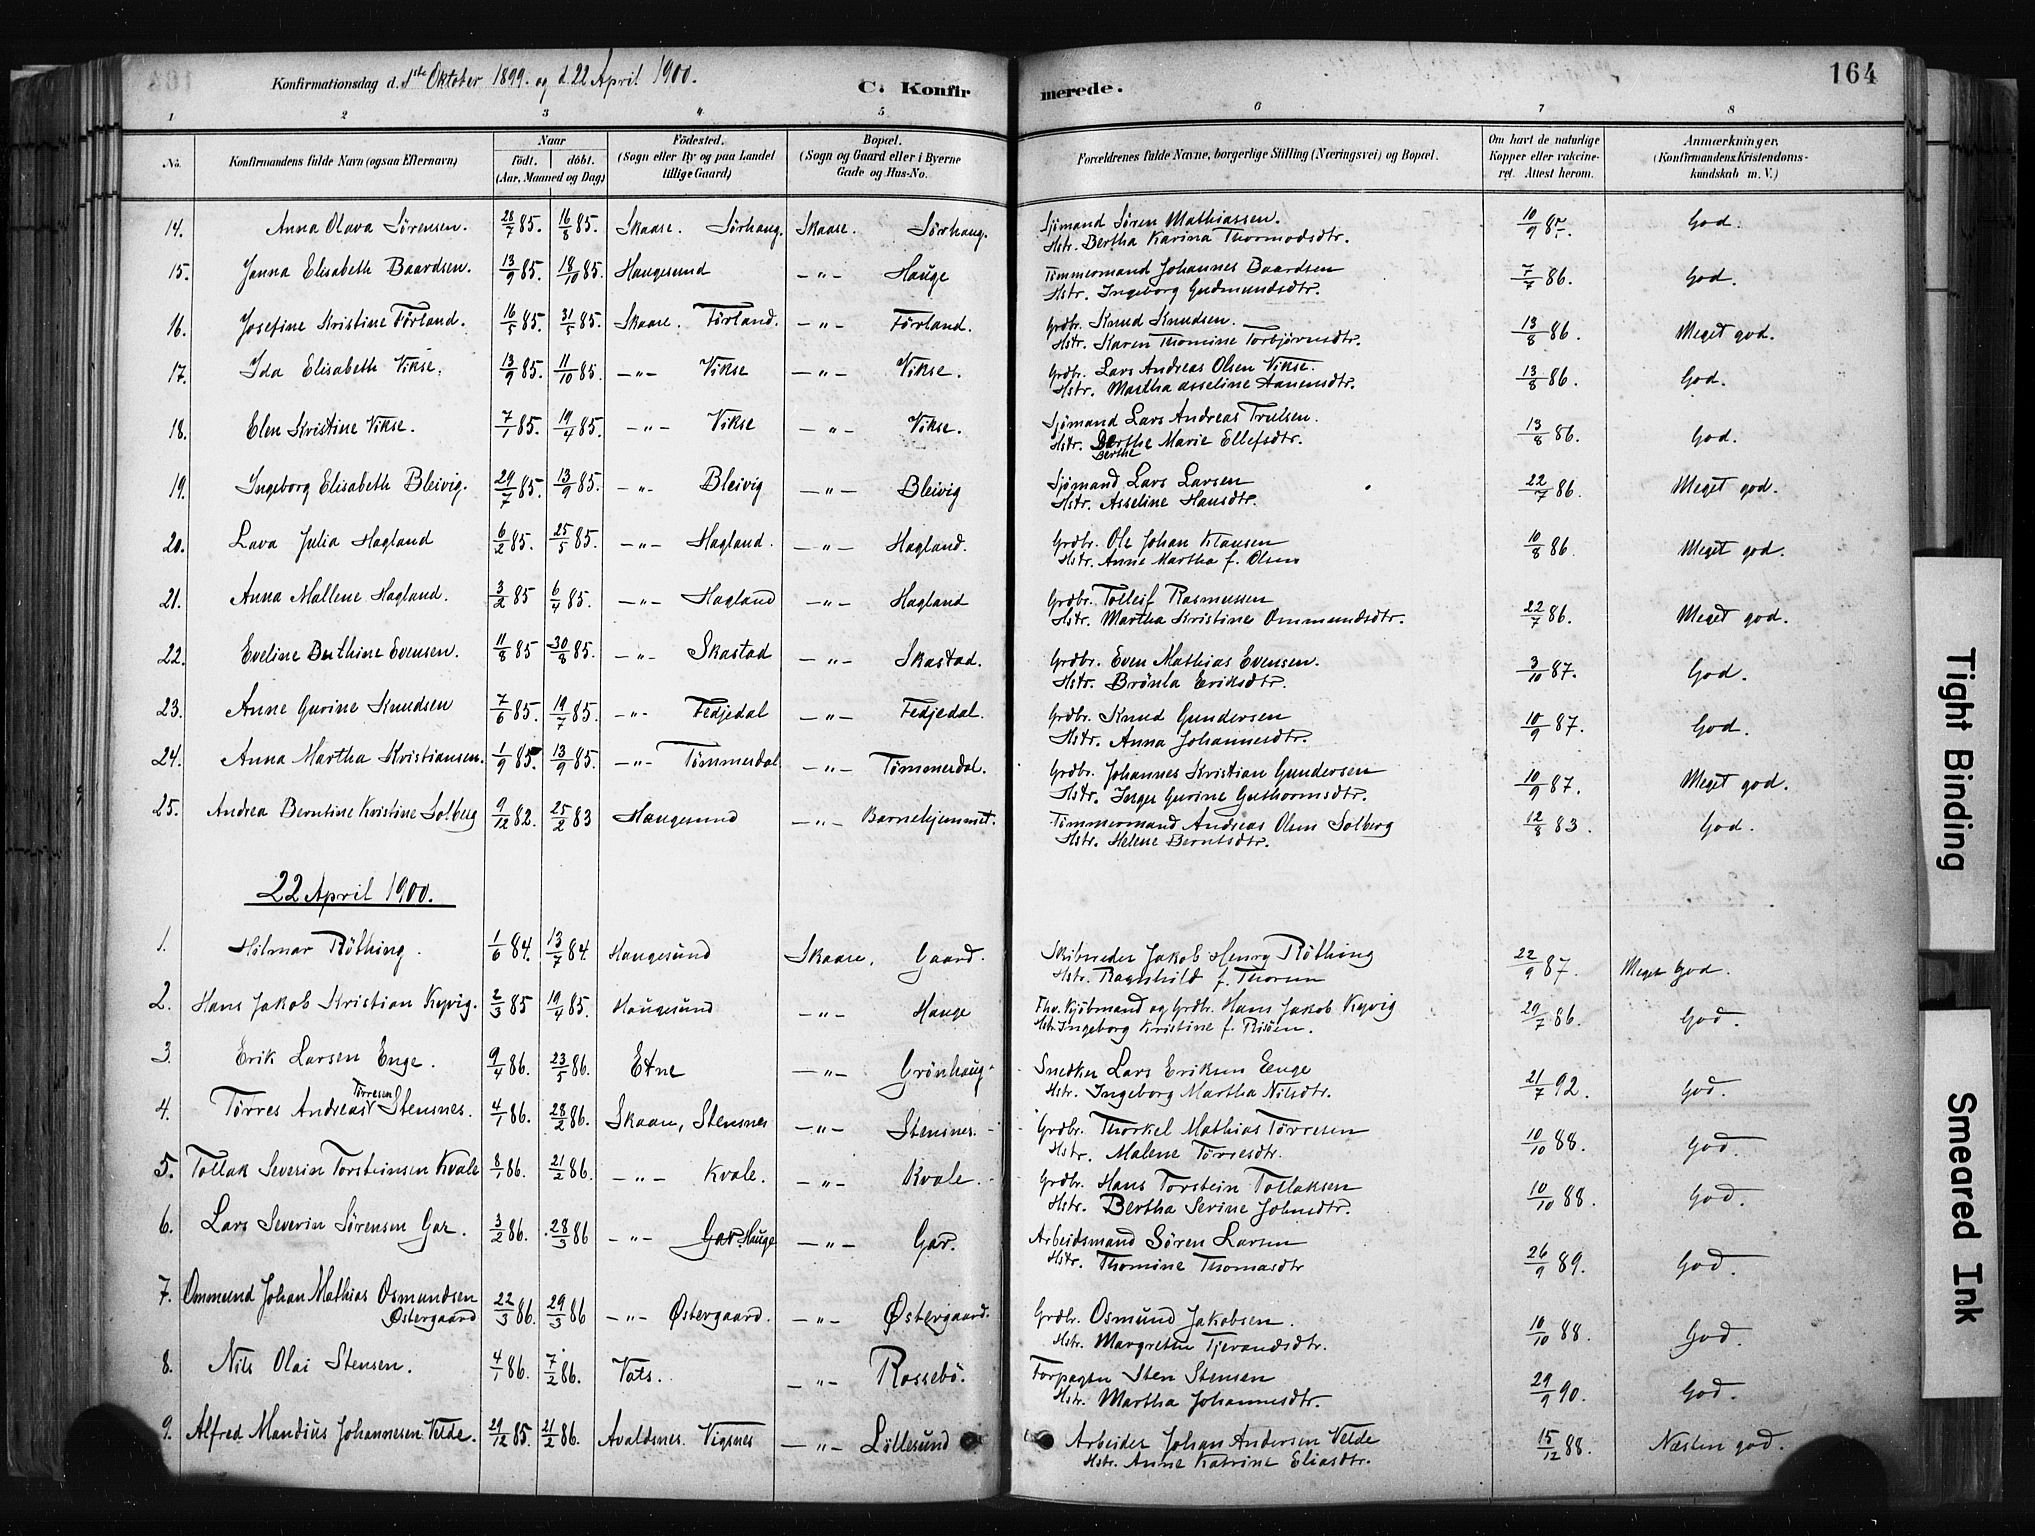 Konfirmationsdag d. 1ste Oktober 1899. og d. 22 April 1900.
C. Konfirmerede.
164
1 2 3 4 5 6 7 8
No.
Konfirmandens fulde Navn (ogsaa Efternavn)
Naar
födt. döbt.
(Aar, Maaned og Dag)
Födested.
(Sogn eller By og paa Landet tillige Gaard)
Bopæl.
(Sogn og Gaard eller i Byerne Gade og Hus-No.
Forældrenes fulde Navne, borgerlige Stilling (Næringsvei) og Bopæl.
Om havt de naturlige Kopper eller vakcineret. Attest herom.
Anmærkninger,
(Konfirmandens Kristendomskundskab m. V.)
14. Anna Olava Sørensen. 28/7 85. 16/8 85. Skaare. Sørhaug. Skaare. Sørhaug. Sjømand Søren Mathiassen. 10/9 85. God.
Hstr. Bertha Karina Thormodsdtr.
15. Janna Elisabeth Baardsen. 13/9 85. 18/10 85. Haugesund —"— Hauge Tömmermand Johannes Baardsen 7/7 86. God.
Hstr. Ingeborg Gudmundsdtr.
16. Josefine Kristine Førland. 16/5 85. 31/5 85. Skaare. Førland. —"— Førland. Grdbr. Knud Knudsen. 13/8 86. Meget god.
Hstr. Karen Thomine Torbjørnsdtr.
17. Ida Elisabeth Vikse. 13/9 85. 11/10 85. —"— Vikse —"— Vikse. Grdbr. Lars Andreas Olsen Vikse. 13/8 86. God.
Hstr. Martha Asseline Aanensdtr.
18. Elen Kristine Vikse. 7/1 85. 19/4 85. —"— Vikse —"— Vikse. Sjømand Lars Andreas Trulsen. 13/8 86. God.
Hstr. Berthe Marie Ellefsdtr.
Berthe
19. Ingeborg Elisabeth Bleivig. 29/7 85. 13/9 85. —"— Bleivig —"— Bleivig Sjømand Lars Larsen 22/7 86. Meget god.
Hstr. Asseline Hansdtr.
20. Lava Julia Hagland 6/2 85. 25/5 85. —"— Hagland. —"— Hagland. Grdbr. Ole Johan Klausen 10/8 86. Meget god.
Hstr. Anne Martha f. Olsen
21. Anna Mallene Hagland. 3/2 85 6/4 85. —"— Hagland —"— Hagland Grdbr. Tolleif Rasmussen 22/7 86. Meget god.
Hstr. Martha Kristine Ommundsdtr.
22. Eveline Berthine Evensen. 11/8 85 30/8 85. —"— Skastad —"— Skastad. Grdbr. Even Mathias Evensen. 3/10 87. God.
Hstr. Brönla Eriksdtr.
23. Anne Gurine Knudsen 7/6 85. 19/7 85. —"— Fedjedal —"— Fedjedal. Grdbr. Knud Gundersen 10/9 87. God.
Hstr. Anna Johannesdtr.
24. Anna Martha Kristiansen. 1/9 85. 13/9 85. —"— Tömmerdal —"— Tömmerdal. Grdbr. Johannes Kristian Gundersen 10/9 87. Meget god.
Hstr. Inger Gurine Guthormsdtr.
25. Andrea Berntine Kristine Solberg 9/12 82. 25/2 83 Haugesund —"— Barnehjemmet. Tömmermand Andreas Olsen Solberg 12/8 83. God.
Hstr. Helene Berntsdtr.
22 April 1900.
1. Hilmar Röthing. 1/6 84. 13/7 84. Haugesund Skaare, Gaard. Skibsreder Jakob Henry Röthing 22/9 87. Meget God.
Hstr. Ragnhild f. Thorsen
2. Hans Jakob Kristian Kyvig. 2/3 85 19/4 85. Haugesund —"— Hauge Fhv. Kjöbmand og Grdbr. Hans Jakob Kyvig 29/7 86. God.
Hstr. Ingeborg Kristine f. Risøen.
3. Erik Larsen Enge. 9/4 86. 23/5 86. Etne —"— Grönhaug Snedker Lars Eriksen Eenge 21/7 92. God.
Hstr. Ingeborg Martha Nilsdtr.
4. Törres Andreas Törresen Stensnes. 4/1 86. 28/2 86. Skaare, Stensnes —"— Stensnes. Grdbr. Thorkel Mathias Törresen 10/10 88. God.
Hstr. Malene Törresdtr.
5. Tollak Severin Torsteinsen Kvale 8/1 86. 21/2 86. —"— Kvale. —"— Kvale. Grdbr. Hans Torstein Tollaksen 10/10 88. God.
Hstr. Bertha Serine Johnsdtr.
6. Lars Severin Sørensen Gar. 3/2 86. 28/3 86 —"— Gar. Hauge —"— Gar. Arbeidsmand Sören Larsen 26/9 89. God.
Hstr. Thomine Thomasdtr
7. Ommund Johan Mathias Osmundsen Østergaard 22/3 86. 29/3 86 —"— Østergaard. —"— Østergaard. Grdbr. Osmund Jakobsen. 10/10 88. God.
Hstr. Margrethe Tjerandsdtr.
8. Nils Olai Stensen. 4/1 86. 7/2 86. Vats. —"— Rossebö. Forpagter Sten Stensen 29/9 90. God.
Hstr. Martha Johannesdtr.
9. Alfred Mandius Johannesen Velde. 29/12 85. 21/2 86. Avaldsnes. Vigsnes —"— Löllesund Arbeider Johan Andersen Velde 15/12 88. Næsten god.
Hstr. Anne Katrine Eliasdtr.
Tight Binding
Smeared Ink